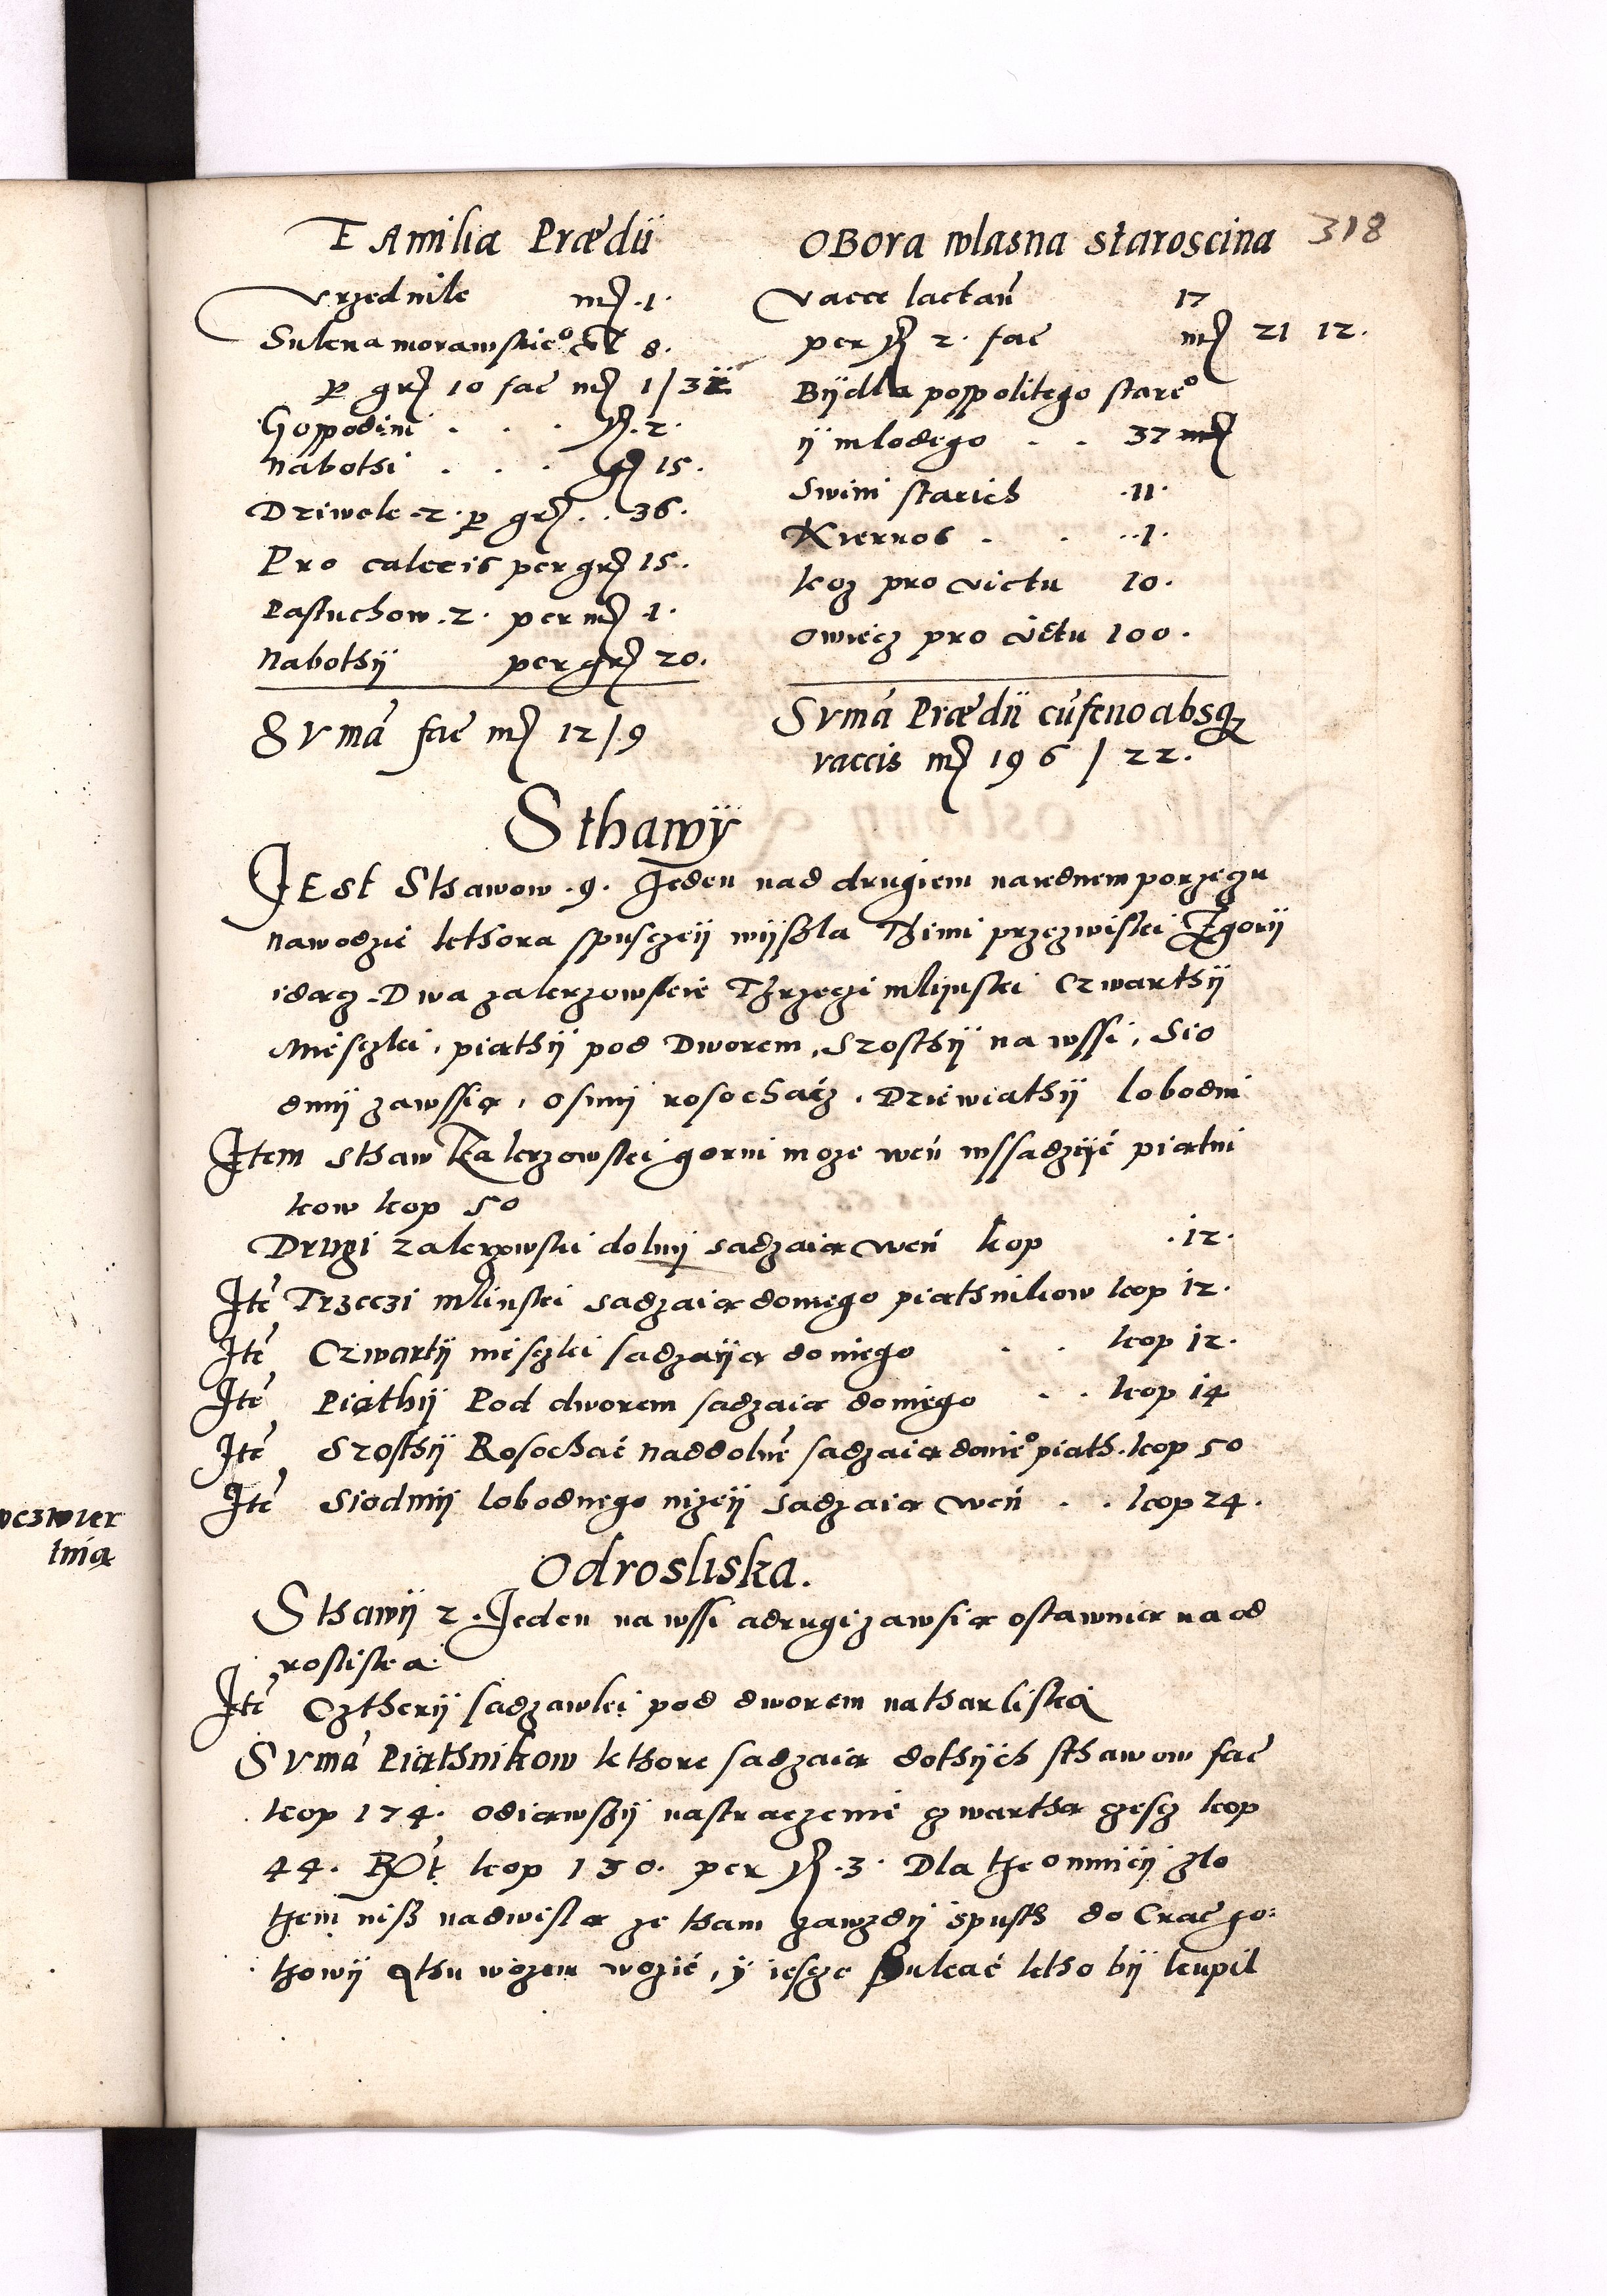 318
FAmilia Prædii
Vrzednik mꝭ .1.
Sukna morawskie° vl 8.
per grꝭ 10 fac mꝭ 1/32
Gospodini . . . fl. 2.
nabothi . . . gꝭ 15.
Dziwek .2. per grꝭ . . 36.
Pro calceis per grꝭ 15.
Pastuchow .2. per mꝭ .1.
Nabothÿ per grꝭ 20.
SVmā fac mꝭ 12/9
OBora wlasna staroscina
Vacce lactan̄ 17
per fl 2. fac mꝭ 21 12.
Bÿdla pospolitego stare°
ÿ mlodego . . 37
Swini starich .11.
Kiernos . . .1.
koz pro victu 10.
owiecz pro victu 100.
SVmā Prædii cū feno absqȝ
vaccis mꝭ 196 / 22.
Sthawÿ
JEst Sthawow .9. Jeden nad drugiem na iednem porzeczu
na wodzie kthora spusczeÿ wÿszla Thimi przezwiski Zgorÿ
idącz. Dwa zakrzowskie Thrzeczi mlÿnski Czwarthÿ
Miesczki, piąthÿ pod Dworem, Szosthÿ na wssi, Sio
dmÿ zawssią, osmÿ rosochacz, Dziewiąthÿ lobodni
Item sthaw Zakrzowski gorni moze weń wssadzÿć piątni
kow kop 50
Drugi zakrzowski dolnÿ sadzaią weń kop .12.
Itē Trzeczi mlinski sadzaią doniego piąthnikow kop 12.
Itē Czwartÿ miesczki sadzaÿą doniego . . kop 12.
Itē Piąthÿ Pod dworem sadzaią doniego . . kop 14
Itē Szosthÿ Rosochac naddolnē sadzaią donie° piąth. kop 50
Itē Siodmÿ lobodnego nizeÿ sadzaią weń . . kop 24.
wczwier
tnią
Odrosliska.
Sthawÿ 2. Jeden na wssi a drugi zawsią ostawnią na od
rosliska
Itē Cztherÿ sadzawki pod dworem na tharliska
SVmā Piąthnikow kthore sadzaią do thÿch sthawow fac
kop 174. odiąwszÿ na straczenie czwarthą czescz kop
44. Rx̄t kop 130. per fl .3. Dla the o mnieÿ zlo
them nisz nadwislą ze tham zawzdÿ spusth do Crac go⸗
thowÿ a thu wozem wozić, ÿ iescze szukać ktho bÿ kupil